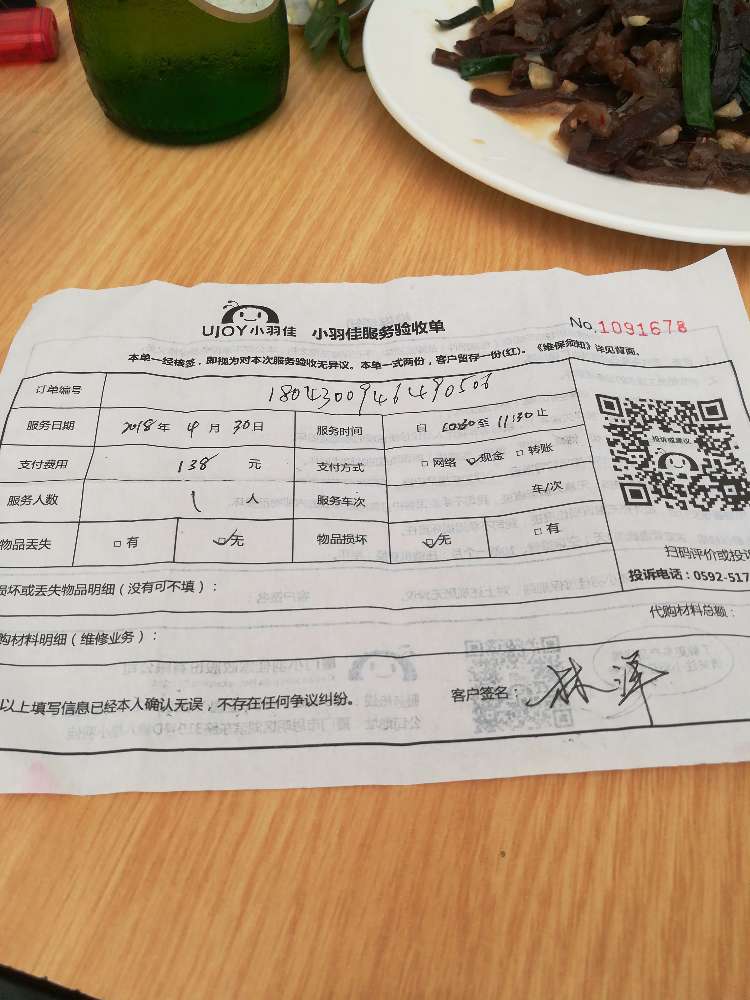 UJOY小羽佳 小羽佳服务验收单 No.1091678
本单一经核签，即视为对本次服务验收无异议。本单一式两份，客户留存一份(红)。《维保须知》详见背面。
订单编号 1804300946490506
服务日期 2018年4月30日 服务时间 自10:30至11:30止
支付费用 138元 支付方式 □网络 ☑现金 □转账
服务人数 1人 服务车次 车/次
物品丢失 □有 ☑无 物品损坏 ☑无 □有
投诉或建议
扫码评价或投诉
投诉电话：0592-517
损坏或丢失物品明细（没有可不填）：
代购材料总额：
购材料明细（维修业务）：
以上填写信息已经本人确认无误，不存在任何争议纠纷。 客户签名：林泽